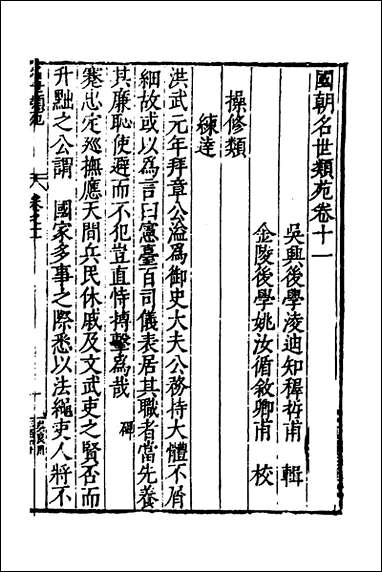 國朝名世類苑卷十一
吳興後學凌迪知穉哲甫 輯
金陵後學姚汝循敘卿甫 校
操修類
練達
洪武元年拜章公溢爲御史大夫公務持大體不屑
細故或以爲言曰憲臺百司儀表居其職者當先養
其廉恥使避而不犯豈直恃搏擊爲哉 碑
蹇忠定巡撫應天間兵民休戚及文武吏之賢否而
升黜之公謂 國家多事之際悉以法繩吏人將不